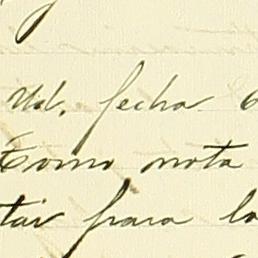 Ud. fecha 6
Como nota
tar para lo